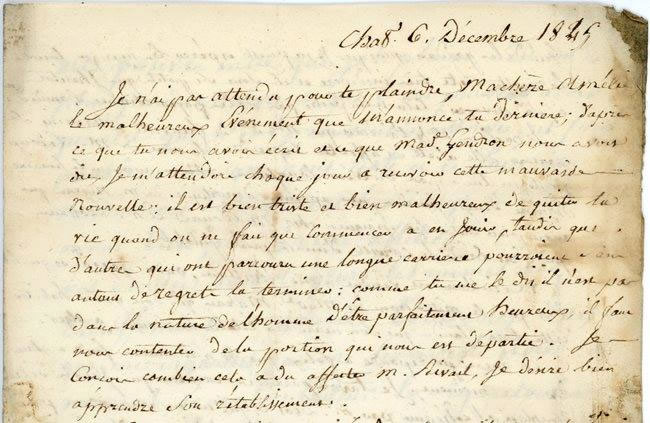 Chat. 6. Décembre 1845
Je n'ai pas attendu pour te plaindre, Ma chère Amélie
le malheureux Evenement que M'annonce ta derniere; d'après
ce que tu nous avois écrit et ce que Made. Gendron nous avoit
dit, Je m'attendois chaque jour a recevoir cette mauvaise
Nouvelle: il est bien triste et bien malheureux de quiter la
vie quand on ne fait que commencer a en Jouir, tandis que
d'autre qui ont parcouru une longue carriere pourroient
autant de regrets la terminer: comme tu me le dis il n'est pas
dans la nature de l'homme d'être parfaitement heureux, il faut
nous contenter de la portion qui nous est départie. Je
Conçois combien cela a du affecter M. Rivail, Je désire bien
apprendre Son rétablissement.